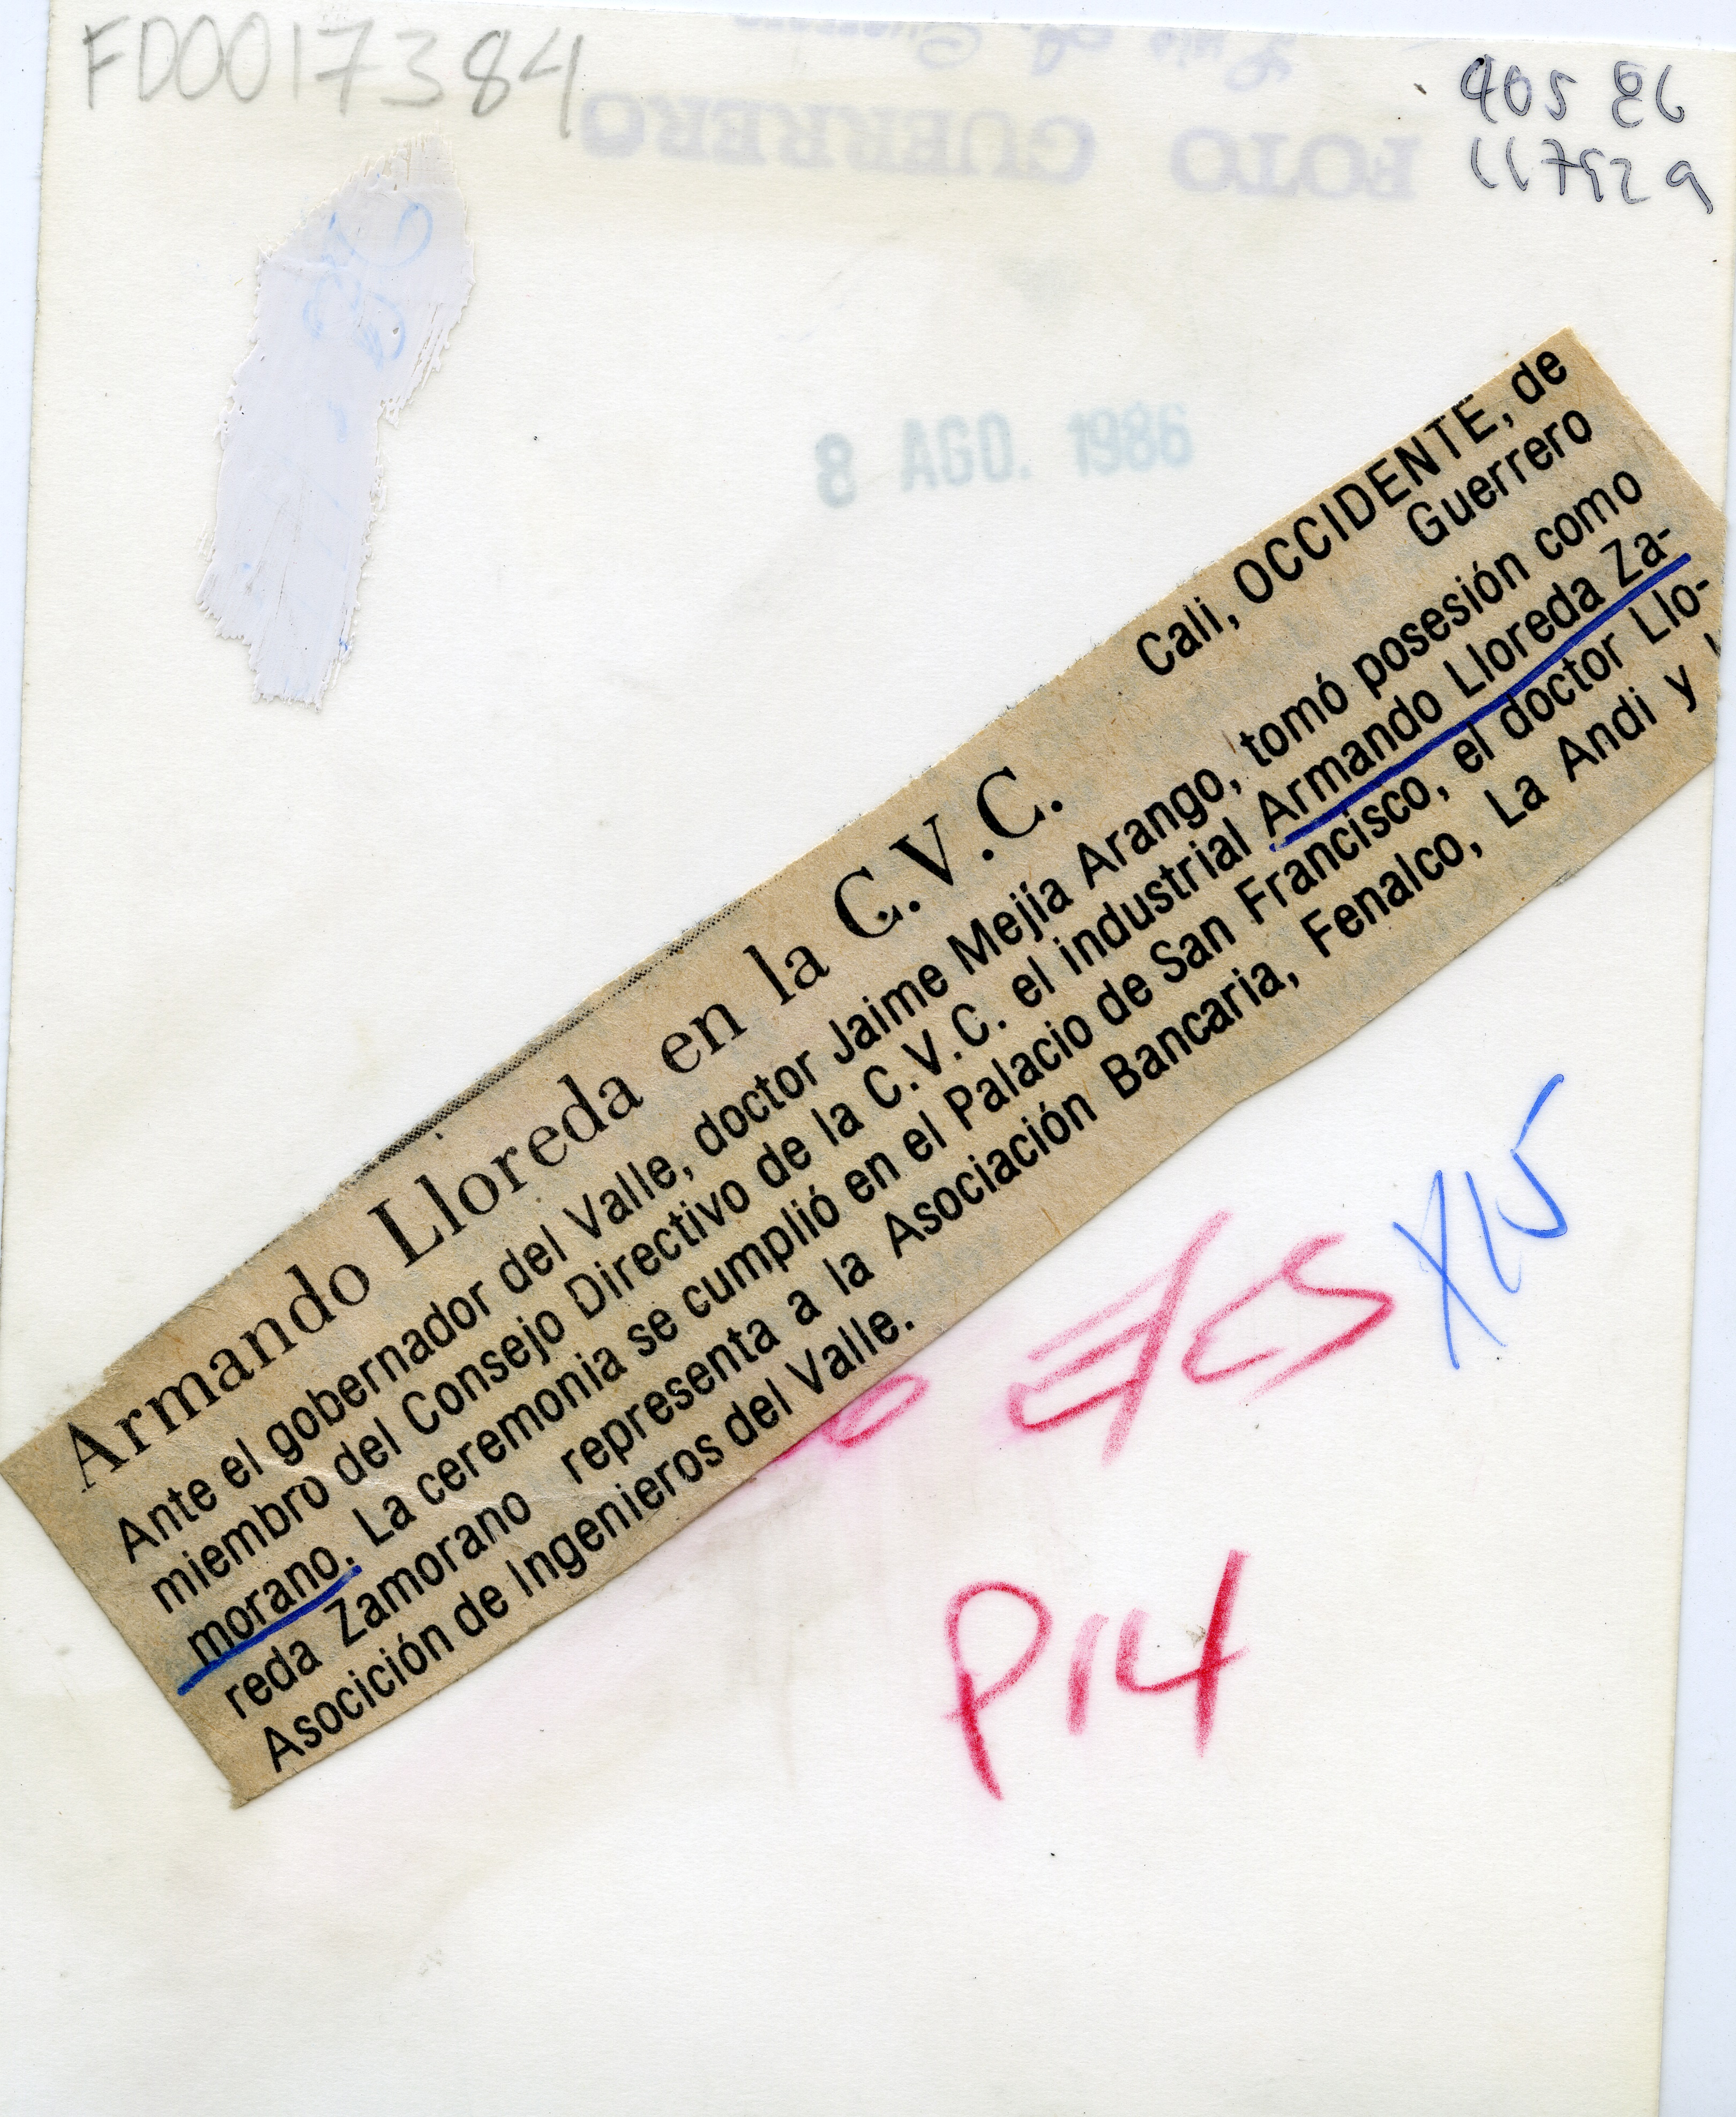 FD0017384
FOTO GUERRERO
8 AGO. 1986
Armando Lloreda en la C.V.C.
Cali, OCCIDENTE, de
Guerrero
Ante el gobernador del Valle, doctor Jaime Mejía Arango, tomó posesión como
miembro del Consejo Directivo de la C.V.C. el industrial Armando Lloreda Za-
morano. La ceremonia se cumplió en el Palacio de San Francisco, el doctor Llo-
reda Zamorano representa a la Asociación Bancaria, Fenalco, La Andi y
Asocición de Ingenieros del Valle.
P14